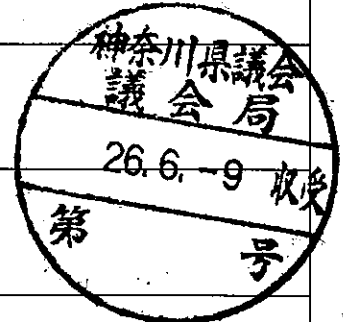 神奈川県議会
議会局
26.6.-9 収受
第 号